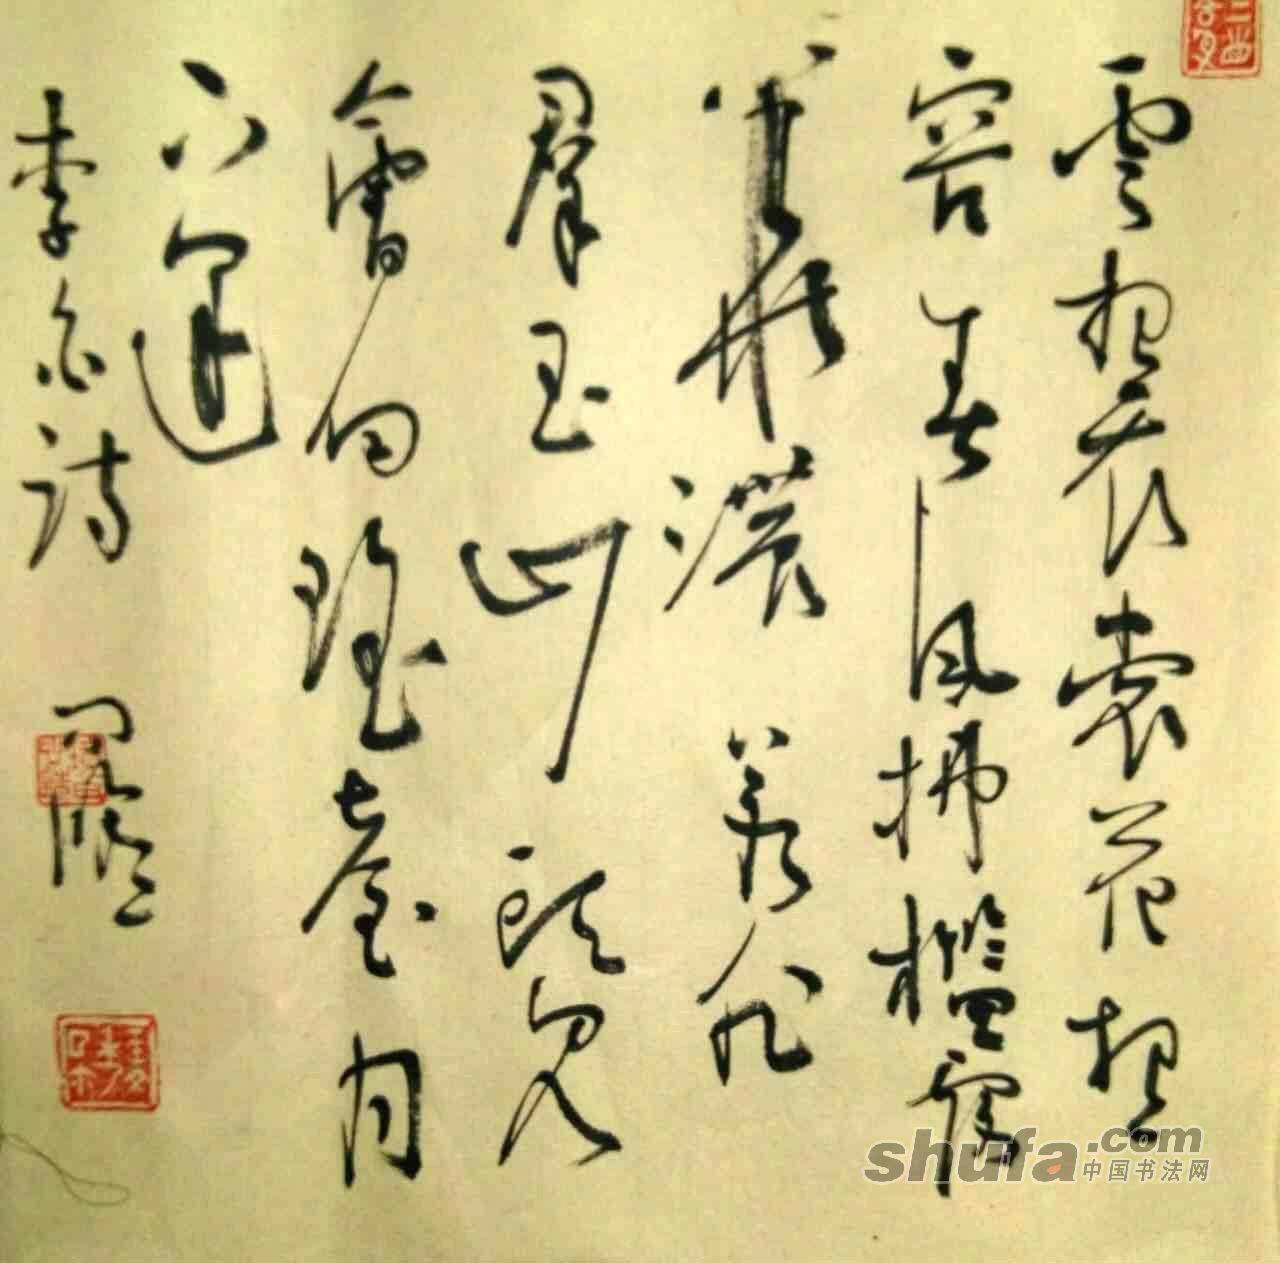 雲想衣裳花想
容春風拂檻露
華濃若非
羣玉山頭見
會向瑤臺月
下逢
李白詩
shufa.com
中国书法网